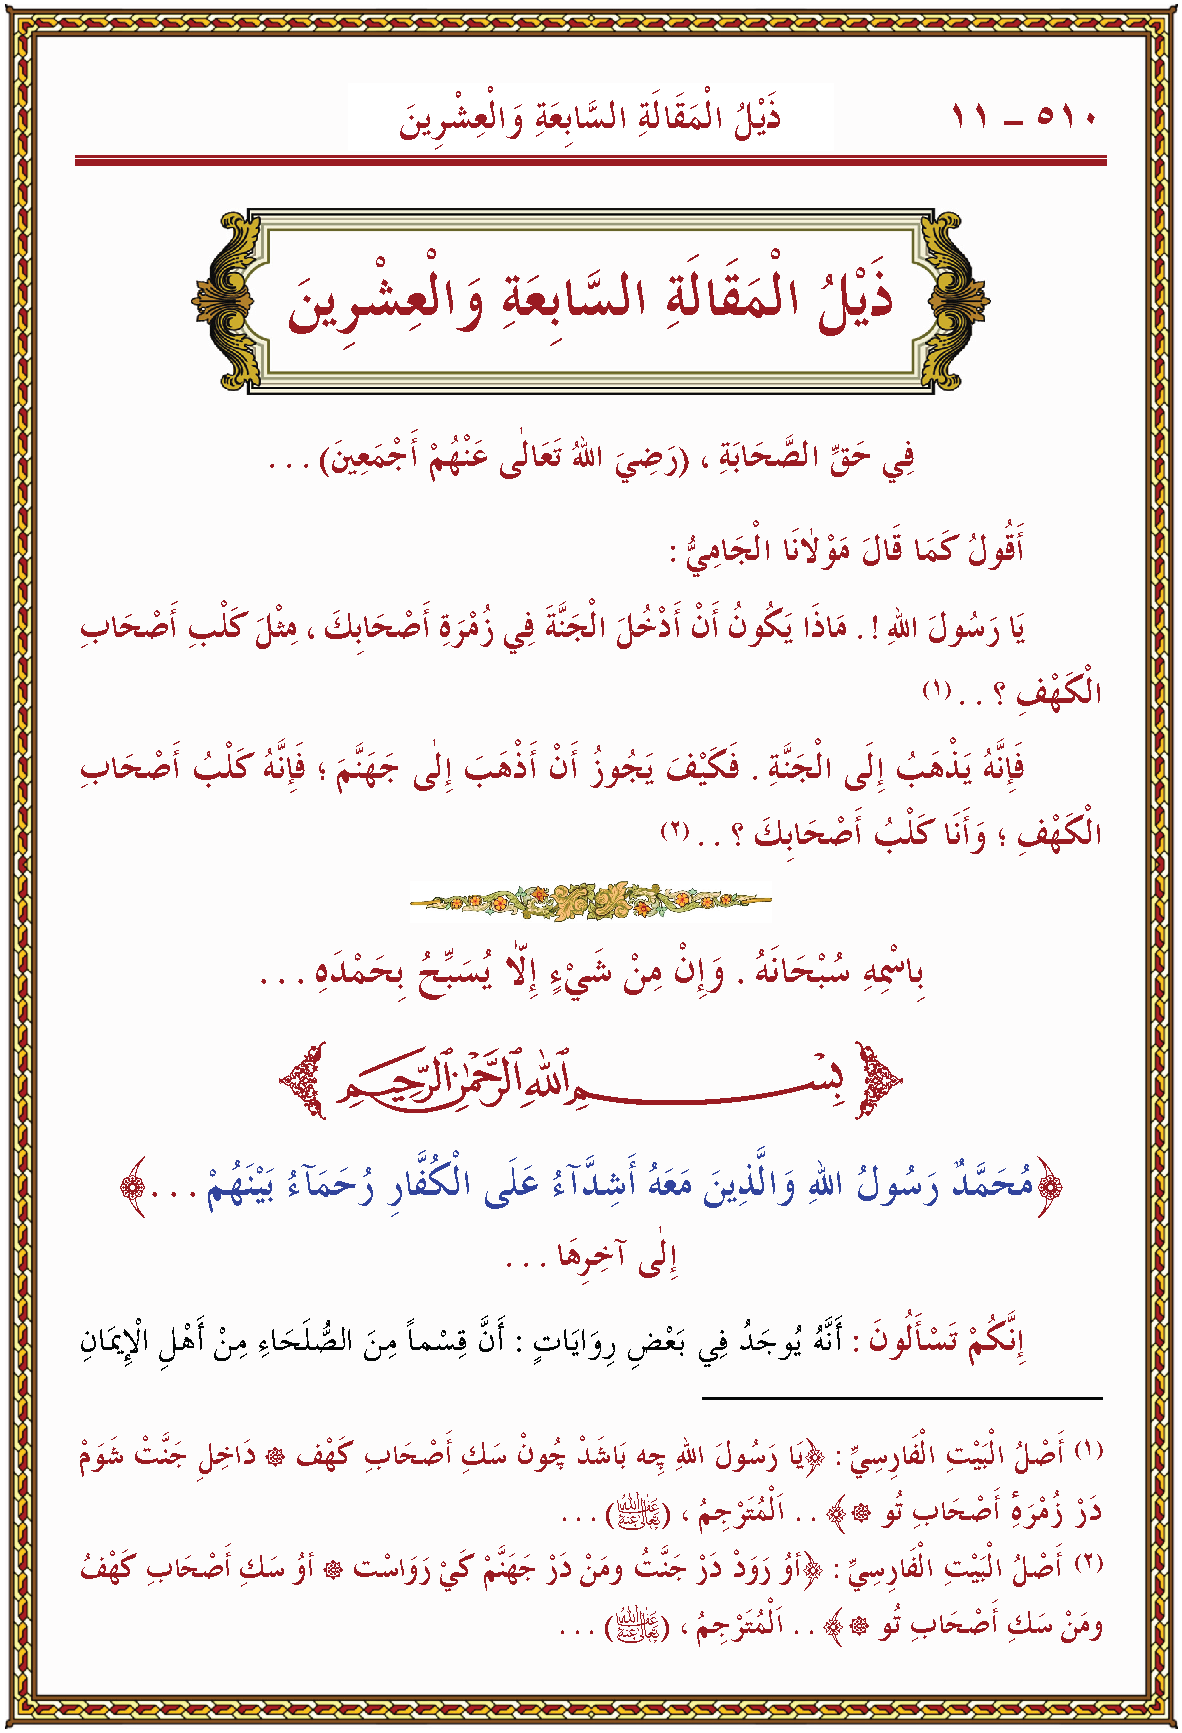 ٥١٠ ـ ١١ ذَيْلُ الْمَقَالَةِ السَّابِعَةِ وَالْعِشْرِينَ
ذَيْلُ الْمَقَالَةِ السَّابِعَةِ وَالْعِشْرِينَ
فِي حَقِّ الصَّحَابَةِ ، (رَضِيَ اللهُ تَعَالٰى عَنْهُمْ أَجْمَعِينَ) . . .
أَقُولُ كَمَا قَالَ مَوْلَانَا الْجَامِيُّ :
يَا رَسُولَ اللهِ ! . مَاذَا يَكُونُ أَنْ أَدْخُلَ الْجَنَّةَ فِي زُمْرَةِ أَصْحَابِكَ ، مِثْلَ كَلْبِ أَصْحَابِ
الْكَهْفِ ؟ . . (١)
فَإِنَّهُ يَذْهَبُ إِلَى الْجَنَّةِ . فَكَيْفَ يَجُوزُ أَنْ أَذْهَبَ إِلٰى جَهَنَّمَ ؛ فَإِنَّهُ كَلْبُ أَصْحَابِ
الْكَهْفِ ؛ وَأَنَا كَلْبُ أَصْحَابِكَ ؟ . . (٢)
بِاسْمِهِ سُبْحَانَهُ . وَإِنْ مِنْ شَيْءٍ إِلَّا يُسَبِّحُ بِحَمْدَهِ . . .
بِسْمِ ٱللهِ ٱلرَّحْمٰنِ ٱلرَّحِيمِ
﴿مُحَمَّدٌ رَسُولُ اللهِ وَالَّذِينَ مَعَهُ أَشِدَّآءُ عَلَى الْكُفَّارِ رُحَمَآءُ بَيْنَهُمْ . . .﴾
إِلٰى آخِرِهَا . . .
إِنَّكُمْ تَسْأَلُونَ : أَنَّهُ يُوجَدُ فِي بَعْضِ رِوَايَاتٍ : أَنَّ قِسْماً مِنَ الصُّلَحَاءِ مِنْ أَهْلِ الْإِيمَانِ
(١) أَصْلُ الْبَيْتِ الْفَارِسِيِّ : ﴿يَا رَسُولَ اللهِ چِه بَاشَدْ چُونْ سَكِ أَصْحَابِ كَهْف ۞ دَاخِلِ جَنَّتْ شَوَمْ
دَرْ زُمْرَهِٔ أَصْحَابِ تُو ۞﴾ . . اَلْمُتَرْجِمُ ، (عَفَا اللهُ تَعَالٰى عَنْهُ) . . .
(٢) أَصْلُ الْبَيْتِ الْفَارِسِيِّ : ﴿أوُ رَوَدْ دَرْ جَنَّتُ ومَنْ دَرْ جَهَنَّمْ كَيْ رَوَاسْت ۞ أوُ سَكِ أَصْحَابِ كَهْفُ
ومَنْ سَكِ أَصْحَابِ تُو ۞﴾ . . اَلْمُتَرْجِمُ ، (عَفَا اللهُ تَعَالٰى عَنْهُ) . . .